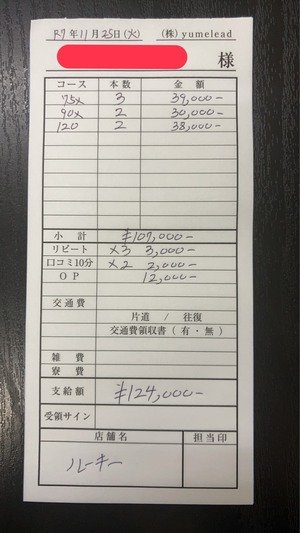 R7年11月25日(火) (株) yumelead
様
コース 本数 金額
75× 3 39,000-
90× 2 30,000-
120 2 38,000-
小計 ¥107,000-
リピート ×3 3,000-
口コミ10分 ×2 2,000-
OP 12,000-
交通費
片道 / 往復
交通費領収書 (有・無)
雑費
寮費
支給額 ¥124,000-
受領サイン
店舗名 担当印
ルーキー